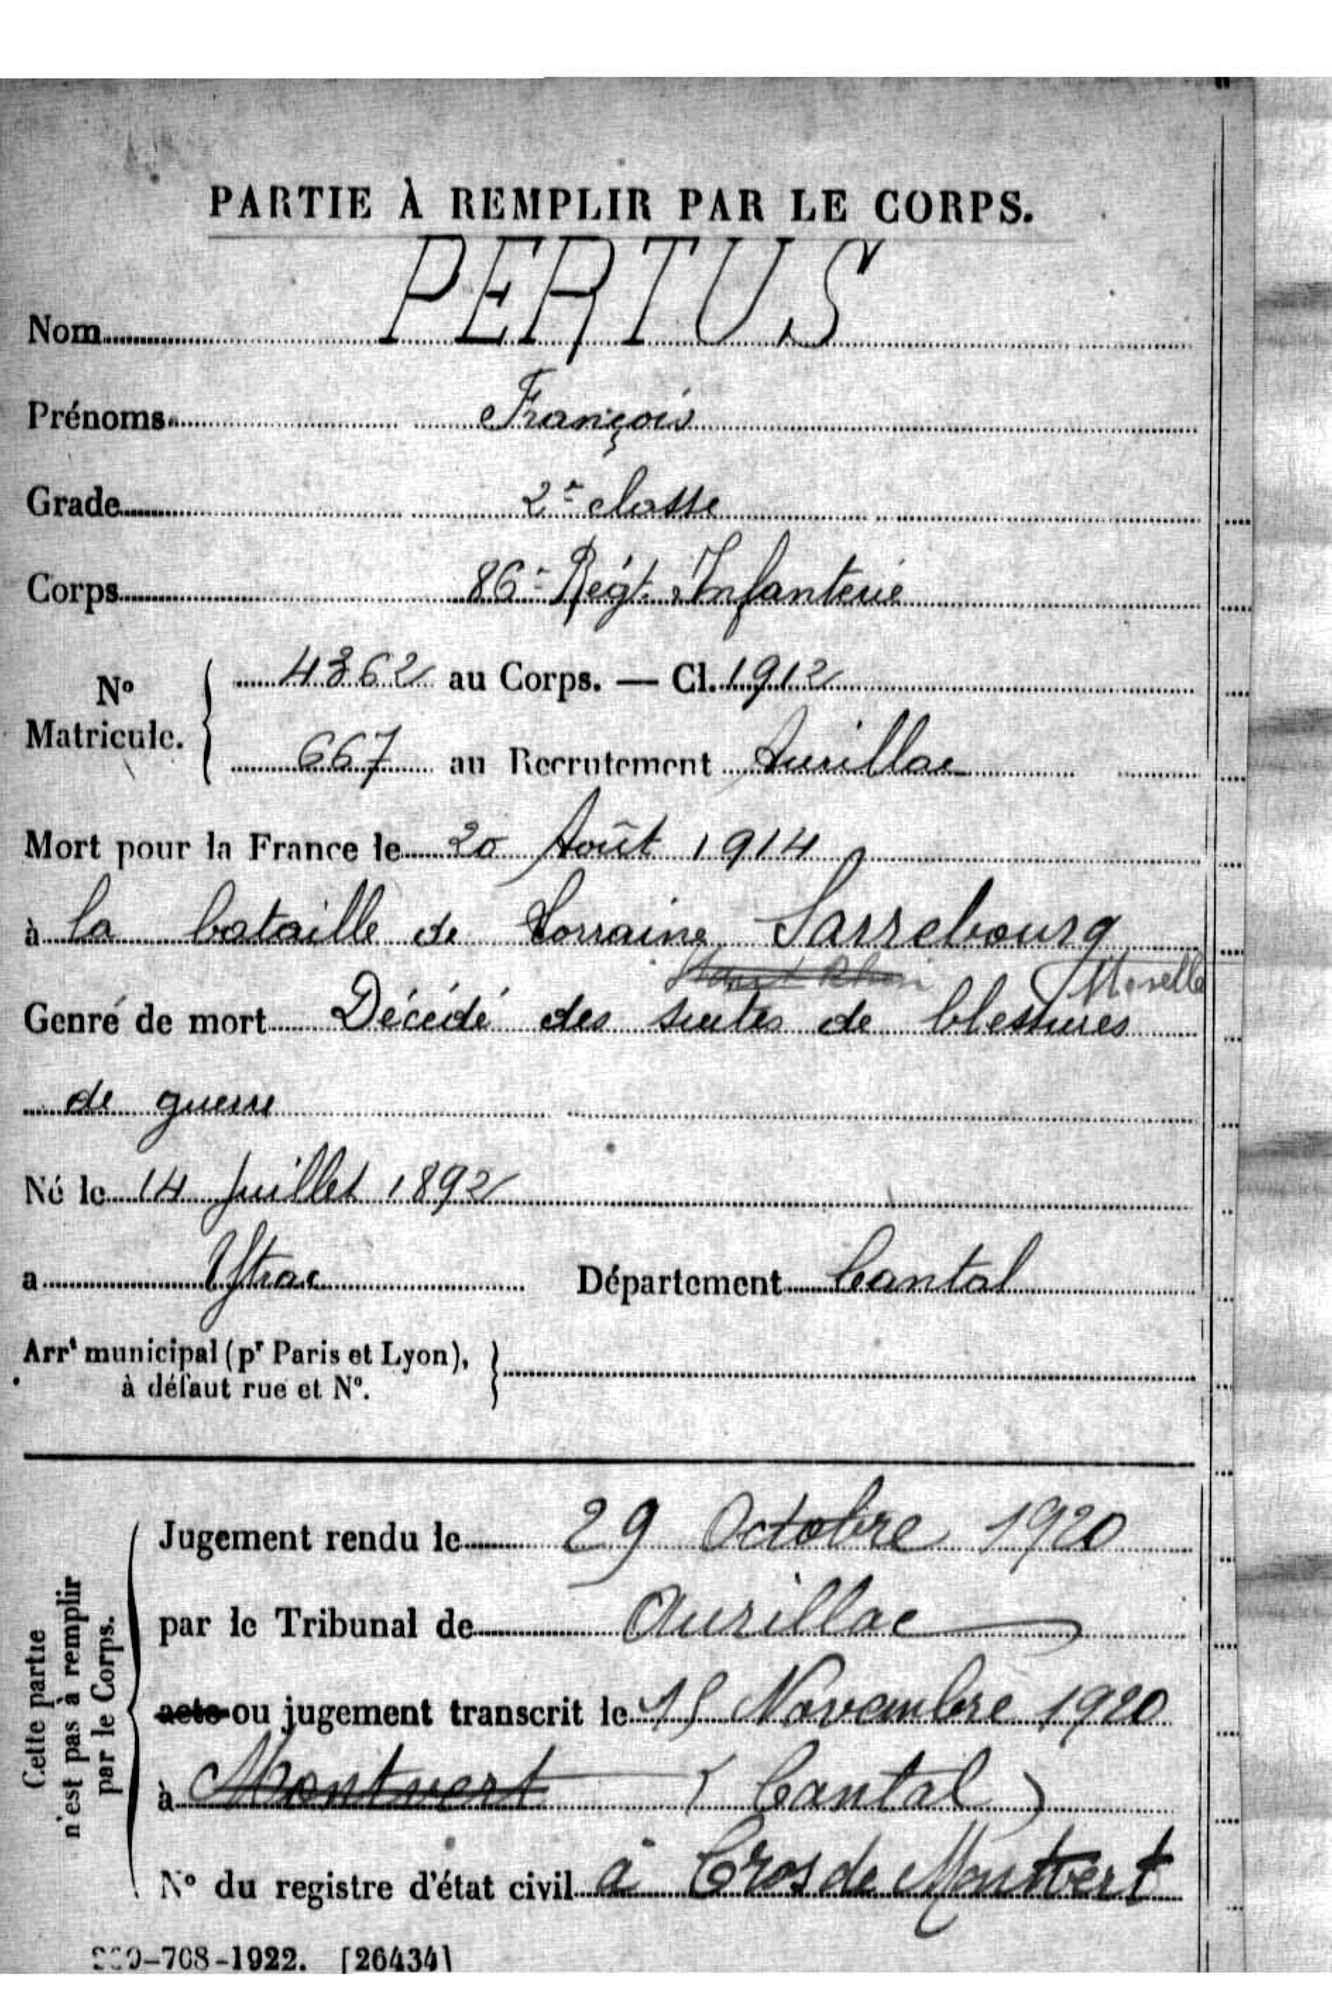 PARTIE À REMPLIR PAR LE CORPS.
Nom PERTUS
Prénoms François
Grade 2e classe
Corps 86e Régt Infanterie
No Matricule. 4362 au Corps. — Cl. 1912
667 au Recrutement Aurillac
Mort pour la France le 20 Août 1914
à la bataille de Lorraine Sarrebourg
Moselle
Genre de mort Décédé des suites de blessures
de guerre
Né le 14 Juillet 1892
à Ytrac Département Cantal
Arrt municipal (pr Paris et Lyon),
à défaut rue et No.
Cette partie
n'est pas à remplir
par le Corps.
Jugement rendu le 29 Octobre 1920
par le Tribunal de Aurillac
acte ou jugement transcrit le 15 Novembre 1920
à Montvert (Cantal)
No du registre d'état civil à Cros de Montvert
-708-1922. [26434]